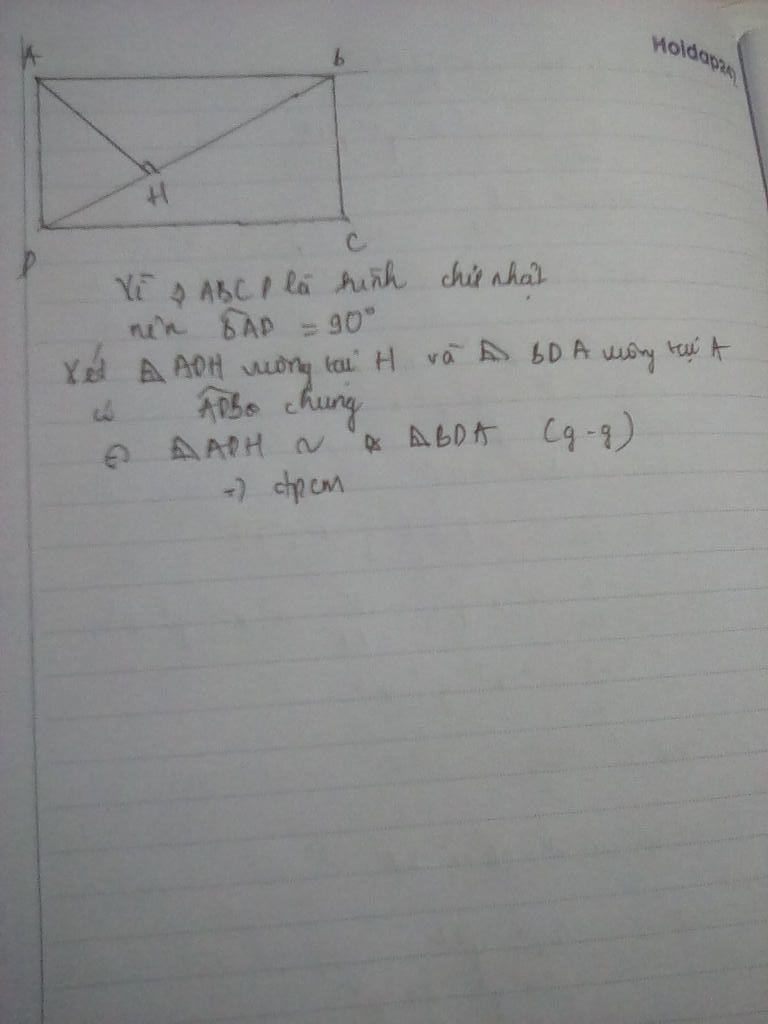 Hoidap247
A B
H
D C
Vì ◊ ABCD là hình chữ nhật
nên BAD = 90°
Xét △ ADH vuông tại H và △ BDA vuông tại A
có ADB chung
⇔ △ADH ~ △BDA (g-g)
=> đpcm